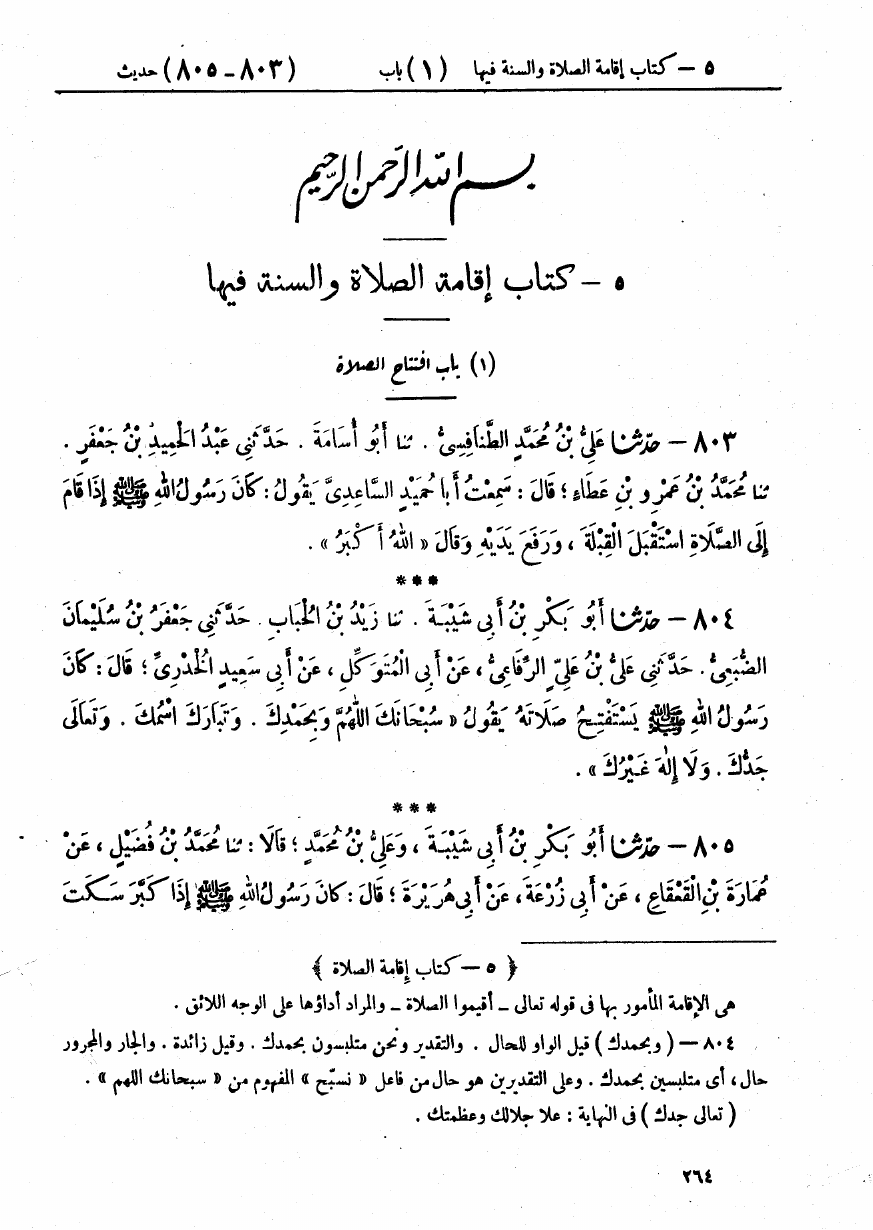 ٥ – كتاب إقامة الصلاة والسنة فيها (١) باب (٨٠٣ – ٨٠٥) حديث
بسم الله الرحمن الرحيم
٥ – كتاب إقامة الصلاة والسنة فيها
(١) باب افتتاح الصلاة
٨٠٣ – حدّثنا عَلِيُّ بْنُ مُحَمَّدٍ الطَّنَافِسِيُّ . ثنا أَبُو أُسَامَةَ . حَدَّثَنِي عَبْدُ الْحَمِيدِ بْنُ جَعْفَرٍ .
ثنا مُحَمَّدُ بْنُ عَمْرِو بْنِ عَطَاءٍ ؛ قَالَ : سَمِعْتُ أَبا حُمَيْدٍ السَّاعِدِىَّ يَقُولُ : كَانَ رَسُولُ اللهِ ﷺ إِذَا قَامَ
إِلَى الصَّلَاةِ اسْتَقْبَلَ الْقِبْلَةَ ، وَرَفَعَ يَدَيْهِ وَقَالَ « اللهُ أَكْبَرُ » .
***
٨٠٤ – حدّثنا أَبُو بَكْرِ بْنُ أَبِى شَيْبَةَ . ثنا زَيْدُ بْنُ الْحُبَابِ . حَدَّثَنِي جَعْفَرُ بْنُ سُلَيْمَانَ
الضُّبَعِىُّ . حَدَّثَنِي عَلِيُّ بْنُ عَلِيٍّ الرِّفَاعِىُّ ، عَنْ أَبِى الْمُتَوَكِّلِ ، عَنْ أَبِى سَعِيدٍ الْخُدْرِىِّ ؛ قَالَ : كَانَ
رَسُولُ اللهِ ﷺ يَسْتَفْتِحُ صَلَاتَهُ يَقُولُ « سُبْحَانَكَ اللّٰهُمَّ وَبِحَمْدِكَ . وَتَبَارَكَ اسْمُكَ . وَتَعَالَى
جَدُّكَ . وَلَا إِلٰهَ غَيْرُكَ » .
***
٨٠٥ – حدّثنا أَبُو بَكْرِ بْنُ أَبِى شَيْبَةَ ، وَعَلِيُّ بْنُ مُحَمَّدٍ ؛ قَالَا : ثنا مُحَمَّدُ بْنُ فُضَيْلٍ ، عَنْ
عُمَارَةَ بْنِ الْقَعْقَاعِ ، عَنْ أَبِى زُرْعَةَ ، عَنْ أَبِى هُرَيْرَةَ ؛ قَالَ : كَانَ رَسُولُ اللهِ ﷺ إِذَا كَبَّرَ سَكَتَ
﴿ ٥ – كتاب إقامة الصلاة ﴾
هى الإقامة المأمور بها فى قوله تعالى – أقيموا الصلاة – والمراد أداؤها على الوجه اللائق .
٨٠٤ – ( وبحمدك ) قيل الواو للحال . والتقدير ونحن متلبسون بحمدك . وقيل زائدة . والجار والمجرور
حال ، أى متلبسين بحمدك . وعلى التقديرين هو حال من فاعل « نسبّح » المفهوم من « سبحانك اللهم » .
( تعالى جدك ) فى النهاية : علا جلالك وعظمتك .
٢٦٤